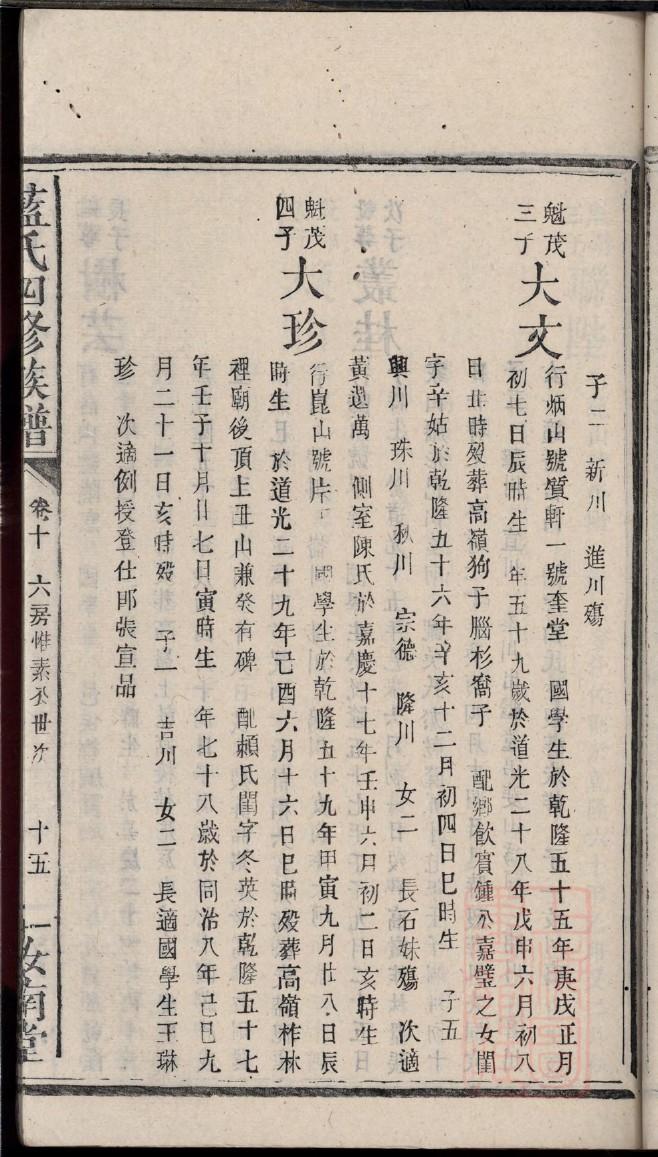 子二 新川 進川殤
魁茂
三子
大文
行炳山號質軒一號奎堂 國學生於乾隆五十五年庚戌正月
初七日辰時生 年五十九歲於道光二十八年戊申六月初八
日丑時歿葬高嶺狗子腦杉窩子 配鄉飲賓鍾公嘉璧之女閨
字辛姑於乾隆五十六年辛亥十二月初四日巳時生 子五
興川 珠川 秋川 宗德 隆川 女二 長石妹殤 次適
黃選萬 側室陳氏於嘉慶十七年壬申六月初二日亥時生
魁茂
四子
大珍
行崑山號片 國學生於乾隆五十九年甲寅九月廿八日辰
時生 於道光二十九年己酉六月十六日巳時歿葬高嶺柞林
裡廟後頂上丑山兼癸有碑 配賴氏閨字冬英於乾隆五十七
年壬子十月廿七日寅時生 年七十八歲於同治八年己巳九
月二十一日亥時歿 子一 吉川 女二 長適國學生王琳
珍 次適例授登仕郎張宣品
藍氏四修族譜 卷十 六房惟素公世次 十五 汝南堂